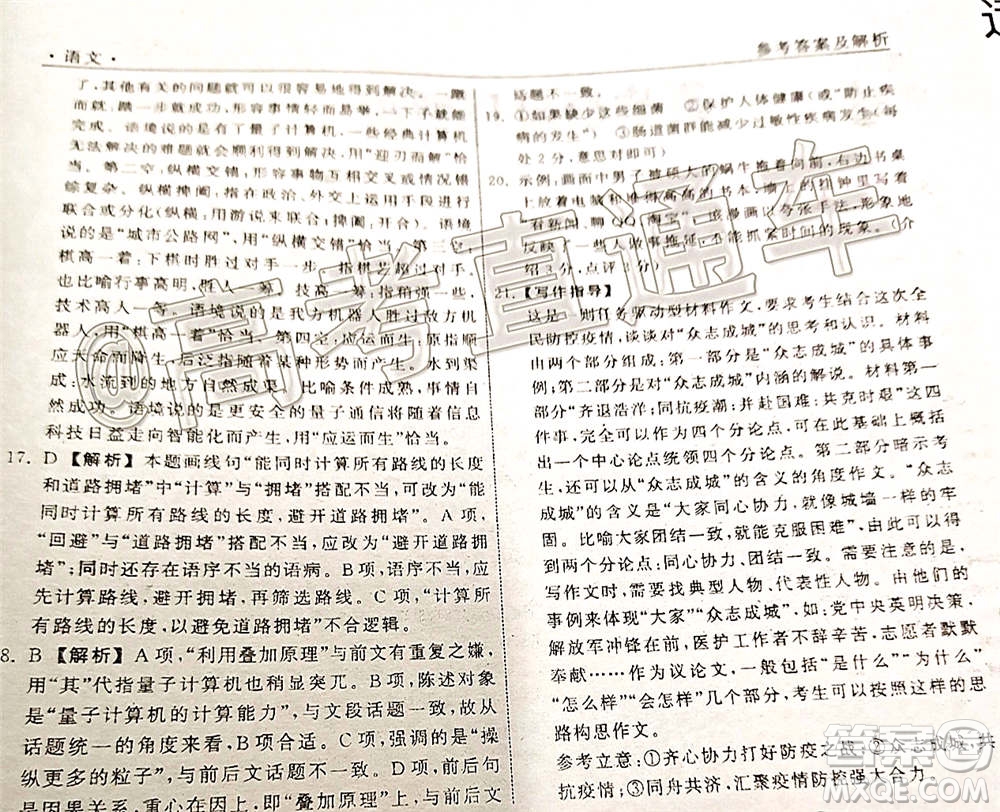 ·语文·
参考答案及解析
了,其他有关的问题就可以很容易地得到解决。一蹴
而就:踏一步就成功,形容事情轻而易举,一下子就能
完成。语境说的是用量子计算机,一些经典计算机
无法解决的难题就会顺利得到解决,用“迎刃而解”恰
当。第二空,纵横交错,形容事物相互交叉或情况错
综复杂。纵横捭阖,指在政治、外交上运用手段进行
联合或分化(纵横:用游说来联合;捭阖:开合)。语境
说的是“城市公路网”,用“纵横交错”恰当。第三空,
棋高一着:下棋时胜过对手。指棋艺等超过对手。
也比喻行事高明。技高一筹:
技术高人一等。语境说的是我方机器人胜过对方机
器人,用“棋高一着”恰当。第四空,应运而生:原指顺
应天命而产生,泛指随着某种形势而产生。水到渠
成:水流到的地方自然成渠。比喻条件成熟,事情自
然成功。语境说的是更安全的量子通信将随着信息
科技日益走向智能化而产生,用“应运而生”恰当。
17. D 【解析】本题画线句“能同时计算所有路线的长度
和道路拥堵”中“计算”与“拥堵”搭配不当,可改为“能
同时计算所有路线的长度,避开道路拥堵”。A项,
“回避”与“道路拥堵”搭配不当,应改为“避开道路拥
堵”;同时还存在语序不当的语病。B项,语序不当,应
先计算路线,避开拥堵,再筛选路线。C项,“计算所
有路线的长度,以避免道路拥堵”不合逻辑。
8. B 【解析】A项,“利用叠加原理”与前文有重复之嫌,
用“其”代指量子计算机也稍显突兀。B项,陈述对象
是“量子计算机的计算能力”,与下文话题一致,从前后
话题统一的角度来看,B项合适。C项,强调的是“操
纵更多的粒子”,与前后文话题不一致。D项,前后句
是因果关系
话题不一致。
19. ①如果缺少这些细菌 ②保护人体健康(或“防止疾
病的发生”) ③肠道菌群能减少过敏性疾病发生(每
处2分,意思对即可)
20. 示例:画面中男子被硕大的蜗牛拖着向前,右边书桌
上放着电脑和博物,墙上的挂钟里写着
“看新闻、聊QQ、淘宝”。该漫画以夸张手法,形象地
反映了一些人做事拖延,不能抓紧时间的现象。(介
绍3分,点评3分)
21. 【写作指导】
这是一则任务驱动型材料作文,要求考生结合这次全
民防控疫情,谈谈对“众志成城”的思考和认识。材料
由两个部分组成:第一部分是“众志成城”的具体事
例;第二部分是对“众志成城”内涵的解说。材料第一
部分以“齐退浩洋;同抗疫潮;并赴国难;共克时艰”这四
个方面作为四个分论点,可在此基础上概括
出一个中心论点统领四个分论点。第二部分暗示考
生,可以从“众志成城”的含义的角度作文。“众志
成城”的含义是“大家同心协力,就像城墙一样的牢
固。比喻大家团结一致,就能克服困难”,由此可以得
出两个分论点:同心协力、团结一致。需要注意的是,
写作文时,需要找典型人物、代表性人物,用他们的
事例来体现“大家”“众志成城”,如:党中央英明决策,
解放军冲锋在前,医护工作者不辞辛苦,志愿者默默
奉献……作为议论文,一般包括“是什么”“为什么”
“怎么样”“会怎样”几个部分,考生可以按照这样的思
路构思作文。
参考立意:①齐心协力打好防疫之战;②众志成城,共
抗疫情;③同舟共济,汇聚疫情防控强大合力。
@高考直通车
答案圈
MXQE.COM